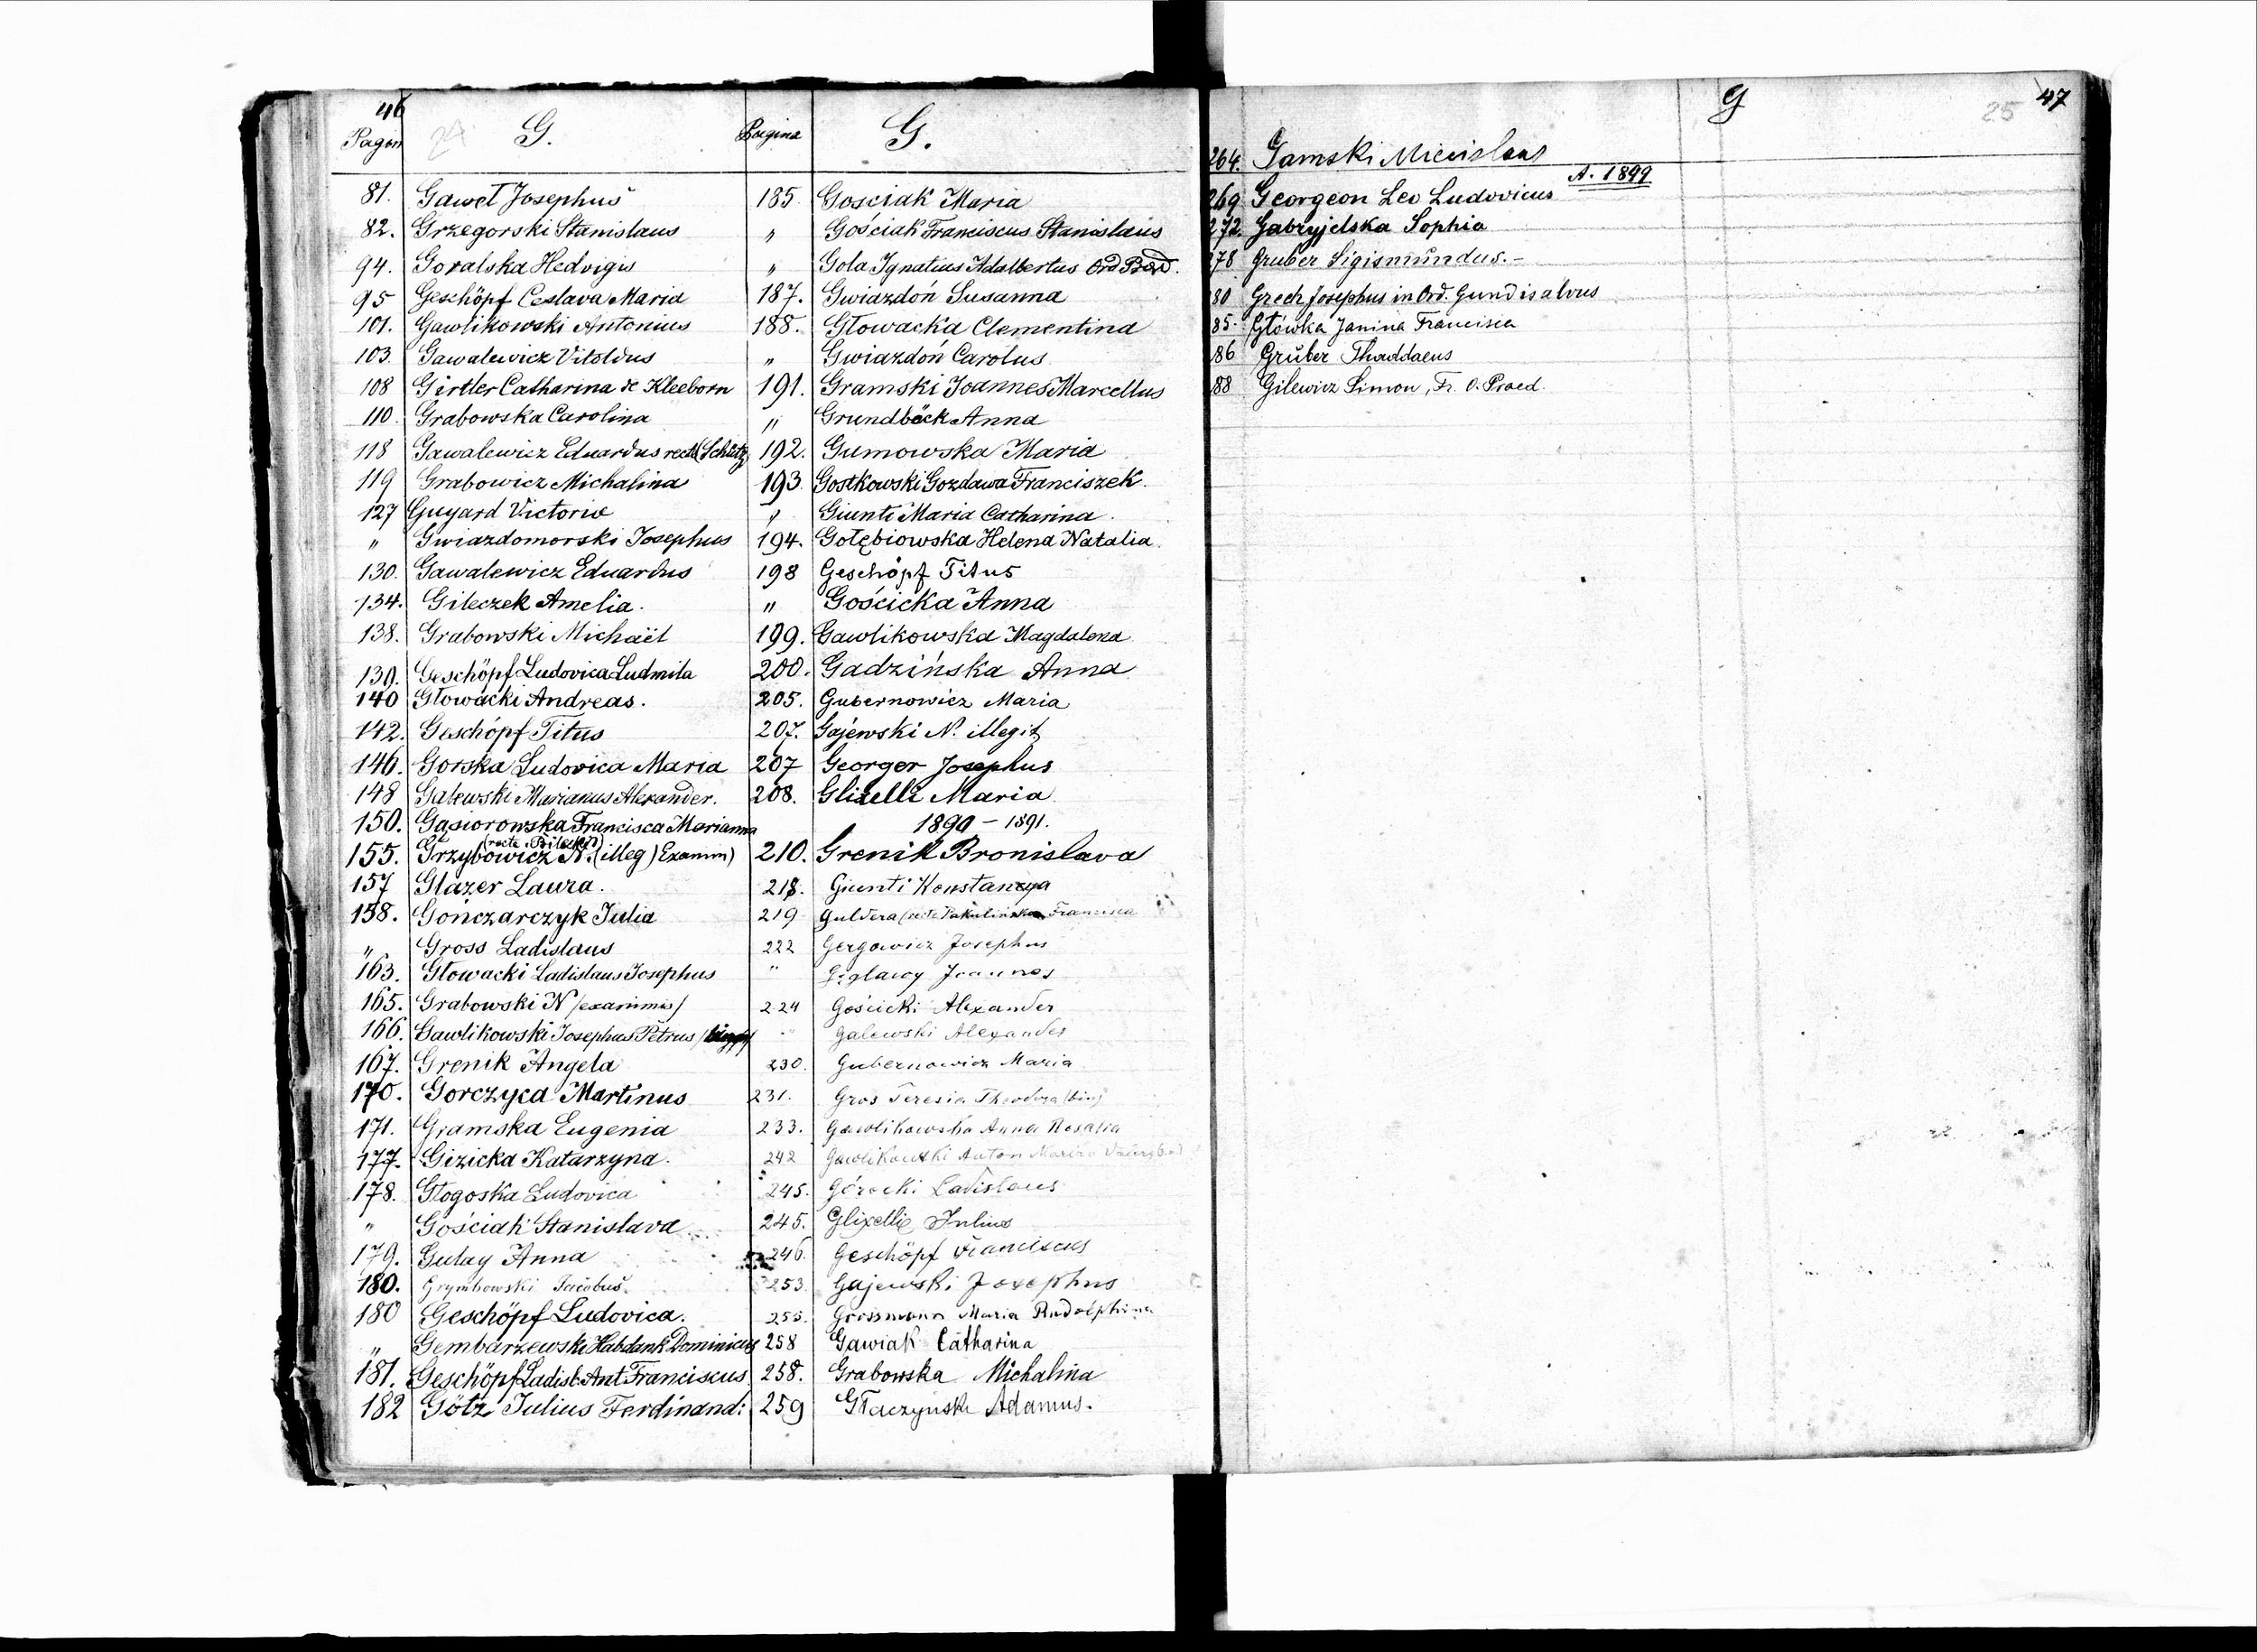 46
Pagina
24
G.
81. Gaweł Josephus
82. Grzegorski Stanislaus
94. Goralska Hedvigis
95 Geschöpf Ceslava Maria
101. Gawlikowski Antonius
103. Gawalewicz Vitoldus
108 Girtler Catharina de Kleeborn
110. Grabowska Carolina
118 Gawalewicz Eduardus recte (Schütz)
119 Grabowicz Michalina
127 Guyard Victoria
" Gwiazdomorski Josephus
130. Gawalewicz Eduardus
134. Gileczek Amelia.
138. Grabowski Michaël
139. Geschöpf Ludovica Ludmila
140 Głowacki Andreas.
142. Geschöpf Titus
146. Gorska Ludovica Maria
148 Galewski Marianus Alexander.
150. Gąsiorowska Francisca Marianna
(recte Bilecki)
155. Grzybowicz N. (illeg) Exanim)
157 Glazer Laura.
158. Gończarczyk Julia
" Gross Ladislaus
163. Głowacki Ladislaus Josephus
165. Grabowski N /exanimis/
166. Gawlikowski Josephus Petrus
167. Grenik Angela
170. Gorczyca Martinus
171. Gramska Eugenia
177. Gizicka Katarzyna.
178. Głogoska Ludovica
" Gościak Stanislava
179. Gulay Anna
180. Grymbowski Jacobus.
180 Geschöpf Ludovica.
" Gembarzewski Habdank Dominicus
181. Geschöpf Ladisl. Ant. Franciscus
182 Götz Julius Ferdinand:
Pagina
G.
185. Gosciak Maria
" Gościak Franciscus Stanislaus
" Gola Ignatius Adalbertus Ord Praed.
187. Gwiazdoń Susanna
188. Głowacka Clementina
" Gwiazdoń Carolus
191. Gramski Joannes Marcellus
" Grundböck Anna
192. Gumowska Maria
193. Gostkowski Gozdawa Franciszek.
" Giunti Maria Catharina.
194. Gołębiowska Helena Natalia.
198 Geschöpf Titus
" Gościcka Anna
199. Gawlikowska Magdalena
200. Gadzińska Anna
205. Gubernowicz Maria
207. Gajewski N. illegit
207 Georger Josephus
208. Glixelli Maria
1890 - 1891.
210. Grenik Bronislava
218. Giunti Konstancya
219 Guldera (recte Pakulinska Francisca
222 Gergowicz Josephus
" Joannes
224 Gościcki Alexander
" Galewski Alexander
230. Gubernowicz Maria
231. Gros Teresia Theodora (bin)
233. Gawlikowska Anna Rosalia
242 Gawlikowski Anton
245. Górecki Ladislaus
245. Glixelli Julius
246. Geschöpf Franciscus
253 Gajewski Josephus
255. Grossmann Maria Rudolphina
258 Gawiak Catharina
258. Grabowska Michalina
259 Głaczyński Adamus.
G
25
47
264. Gamski Miecislaus
A. 1899
269 Georgeon Leo Ludovicus
272. Gabryjelska Sophia
278 Gruber Sigismundus. -
80 Grech Josephus in Ord. Gundisalvus
85. Główka Janina Francisca
86 Gruber Thaddaeus
88 Gilewicz Simon, Fr. O. Praed.